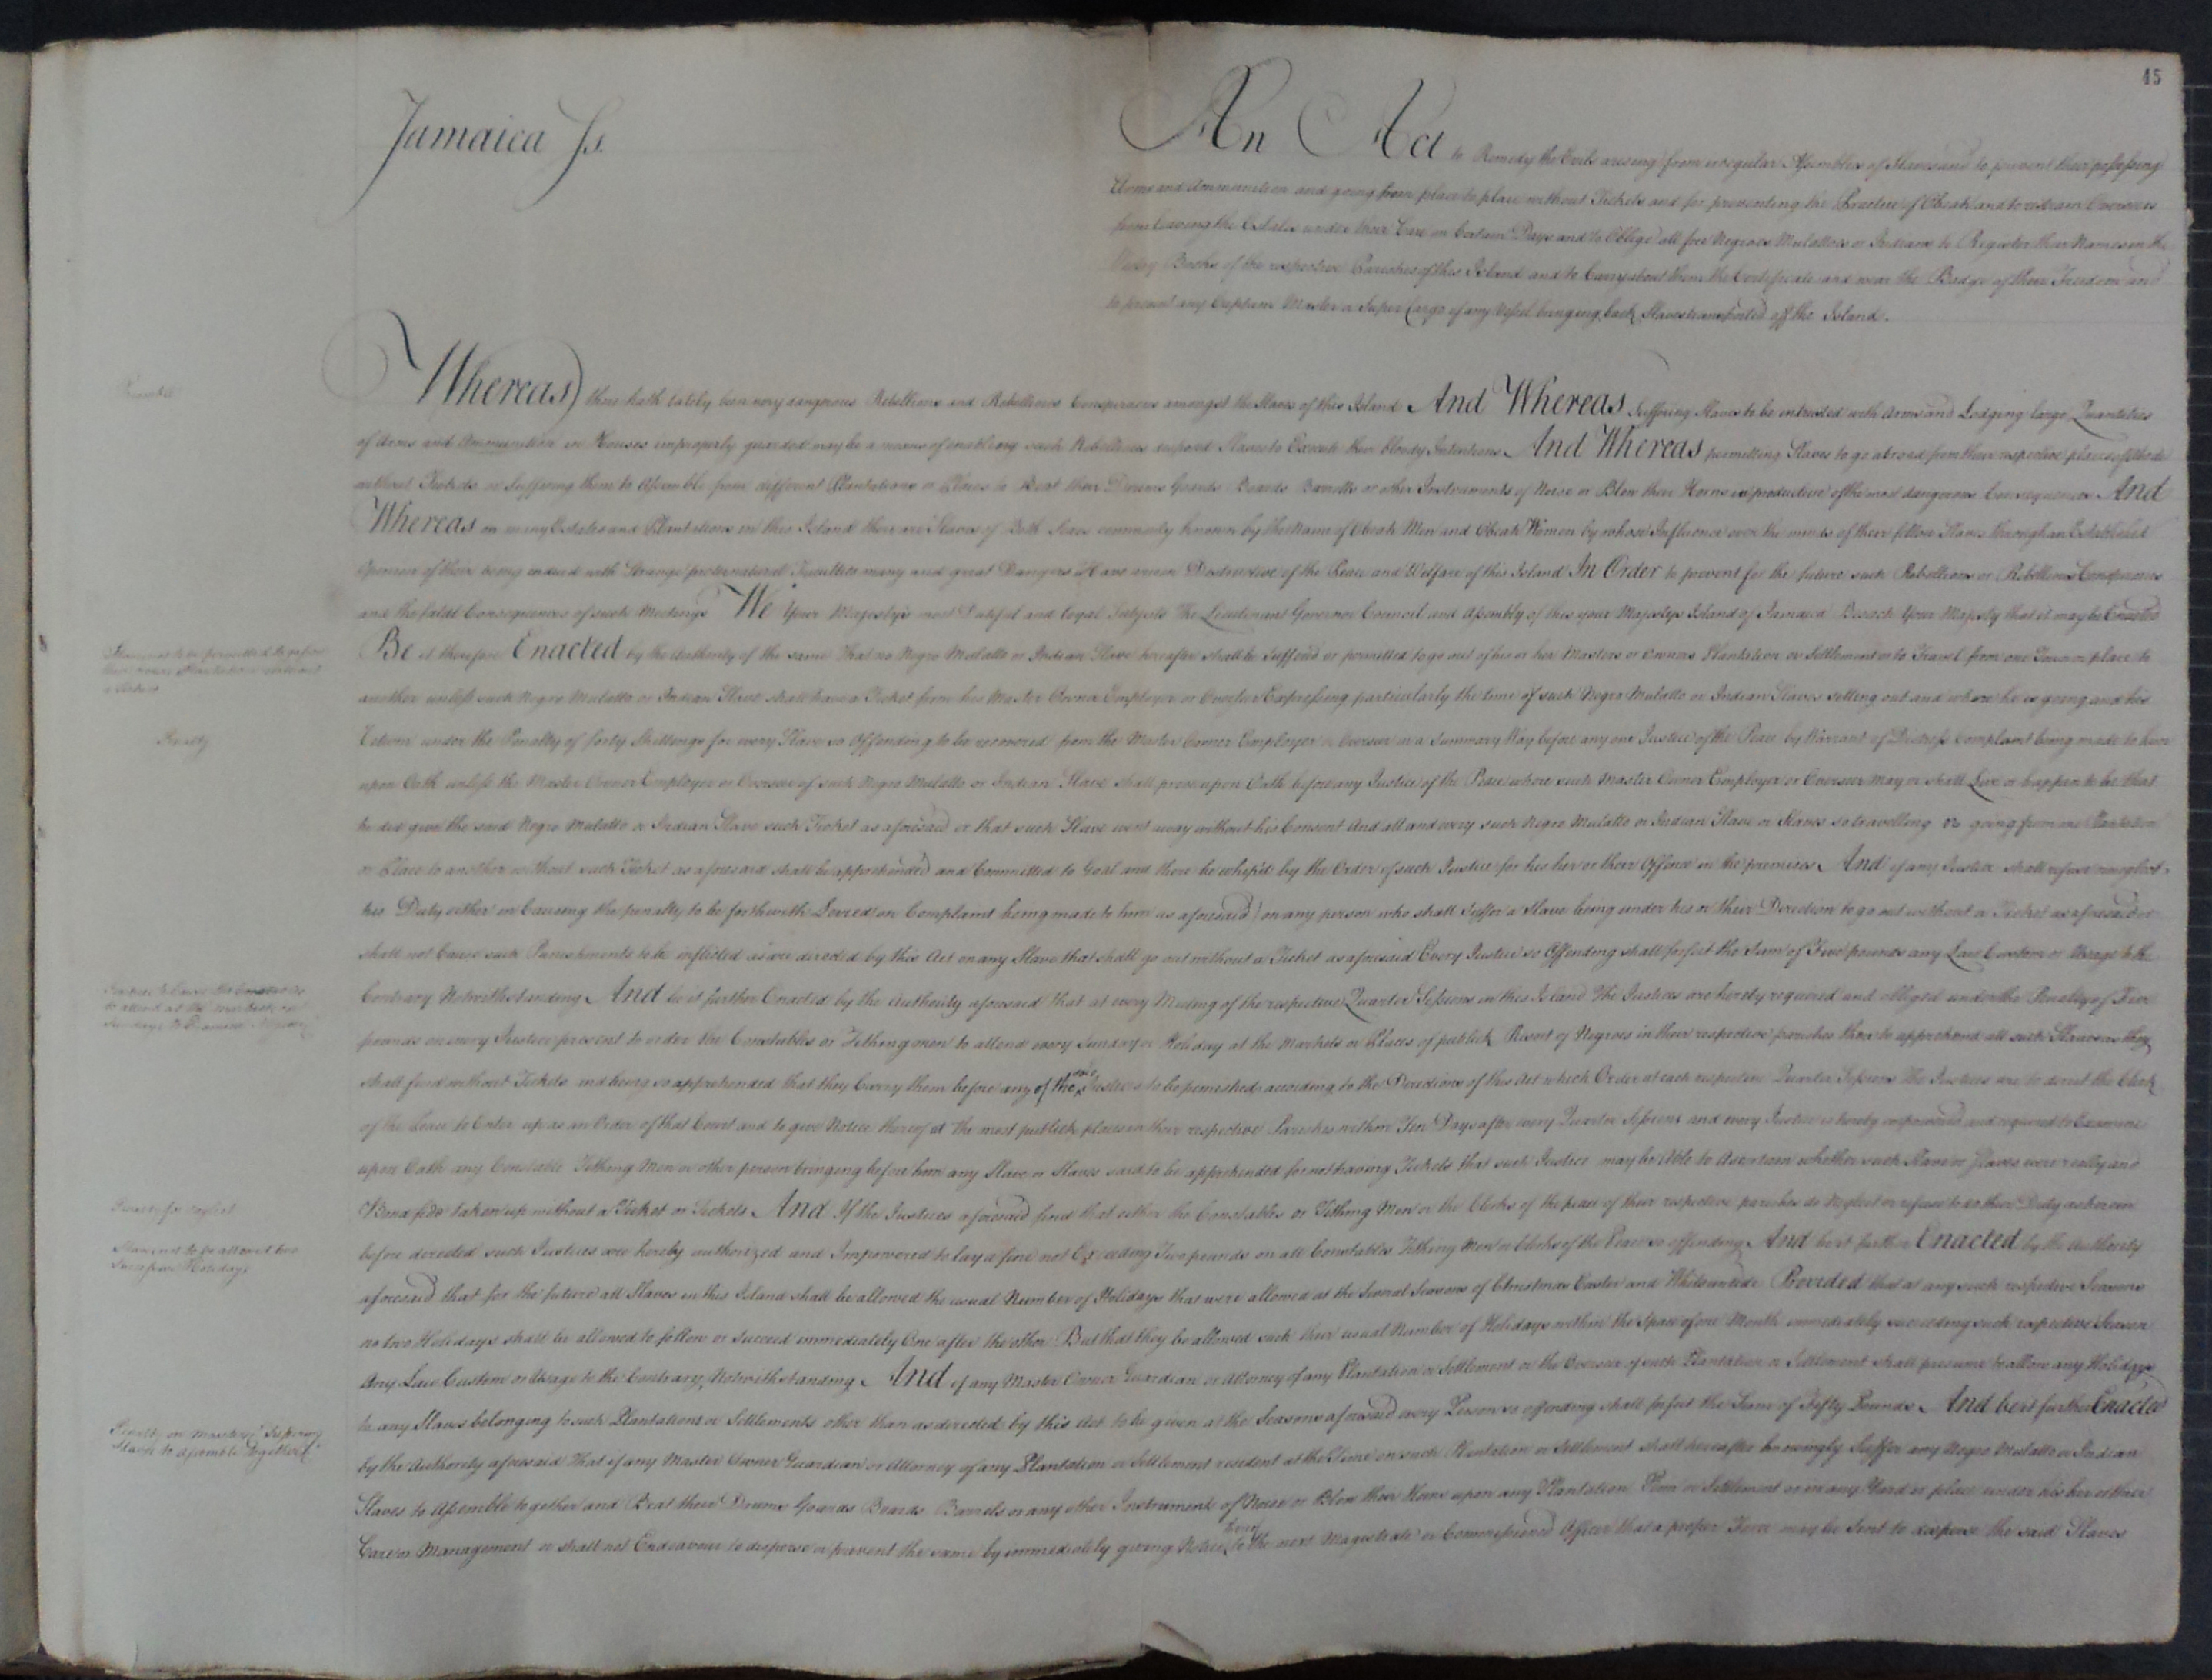 45
Jamaica Ss.
An Act to Remedy the Evils arising from irregular Assemblies of Slaves and to prevent their possessing
Arms and Ammunition and going from place to place without Tickets and for preventing the Practice of Obeah and to restrain Overseers
from leaving the Estates under their Care on Certain Days and to Oblige all free Negroes Mulattoes or Indians to Register their Names in the
Vestry Books of the respective Parishes of this Island and to Carry about them the Certificate and wear the Badge of their Freedom and
to prevent any Captain Master or Super Cargo of any Vessel bringing back Slaves transported off the Island.
Preamble
Whereas there hath lately been very dangerous Rebellions and Rebellious Conspiracies amongst the Slaves of this Island And Whereas Suffering Slaves to be intrusted with Arms and Lodging large Quantities
of Arms and Ammunition in Houses improperly guarded may be a means of enabling such Rebellious disposed Slaves to Execute their bloody Intentions And Whereas permitting Slaves to go abroad from their respective places of Abode
without Tickets or Suffering them to Assemble from different Plantations or Places to Beat their Drums Gourds Boards Barrells or other Instruments of Noise or Blow their Horns is productive of the most dangerous Consequences And
Whereas on many Estates and Plantations in this Island there are Slaves of Both Sexes commonly known by the Name of Obeah Men and Obeah Women by whose Influence over the minds of their fellow Slaves through an Established
Opinion of their being endued with Strange preternatural Faculties many and great Dangers Have arisen Destructive of the Peace and Welfare of this Island In Order to prevent for the future such Rebellions or Rebellious Conspiracies
and the fatal Consequences of such Meetings We Your Majesty's most Dutiful and loyal Subjects The Lieutenant Governor Council and Assembly of this your Majestys Island of Jamaica Beseech Your Majesty that it may be Enacted
Slaves not to be permitted to go from
their Plantation without
a Ticket
Be it therefore Enacted by the Authority of the same That no Negro Mulatto or Indian Slave hereafter shall be Suffered or permitted to go out of his or her Masters or Owners Plantation or Settlement or to Travel from one Town or place to
another unless such Negro Mulatto or Indian Slave shall have a Ticket from his Master Owner Employer or Overseer Expressing particularly the time of such Negro Mulatto or Indian Slaves setting out and where he is going and his
Penalty
Return under the Penalty of forty Shillings for every Slave so Offending to be recovered from the Master Owner Employer or Overseer in a Summary Way before any one Justice of the Peace by Warrant of Distress Complaint being made to him
upon Oath unless the Master Owner Employer or Overseer of such Negro Mulatto or Indian Slave shall prove upon Oath before any Justice of the Peace where such Master Owner Employer or Overseer may or shall Live or happen to be that
he did give the said Negro Mulatto or Indian Slave such Ticket as aforesaid or that such Slave went away without his Consent And all and every such Negro Mulatto or Indian Slave or Slaves so travelling or going from one Plantation
or Place to another without such Ticket as aforesaid shall be apprehended and Committed to Goal and there be whip'd by the Order of such Justice for his her or their Offence in the premises And if any Justice shall refuse or neglect
his Duty either in Causing the penalty to be forthwith Levied (on Complaint being made to him as aforesaid) on any person who shall Suffer a Slave being under his or their Direction to go out without a Ticket as aforesaid or
shall not Cause such Punishments to be inflicted as are directed by this Act on any Slave that shall go out without a Ticket as aforesaid Every Justice so Offending shall forfeit the Sum of Five pounds any Law Custom or Usage to the
Contrary Notwithstanding And be it further Enacted by the Authority aforesaid That at every Meeting of the respective Quarter Sessions in this Island The Justices are hereby required and obliged under the Penalty of Five
pounds on every Justice present to order the Constables or Tething men to attend every Sunday or Holiday at the Markets or Places of publick Resort of Negroes in their respective parishes there to apprehend all such Slaves as they
shall find without Tickets and being so apprehended that they Carry them before any of the said Justices to be punished according to the Directions of this Act which Order at each respective Quarter Sessions The Justices are to direct the Clerk
of the Peace to Enter up as an Order of that Court and to give Notice thereof at the most publick places in their respective Parishes within Ten Days after every Quarter Sessions and every Justice is hereby impowered and required to Examine
upon Oath any Constable Tething Men or other person bringing before him any Slave or Slaves said to be apprehended for not having Tickets that such Justice may be Able to Ascertain whether such Slave or Slaves were really and
Penalty for neglect
Bona fide taken up without a Ticket or Tickets And If the Justices aforesaid find that either the Constables or Tething Men or the Clerks of the peace of their respective parishes do Neglect or refuse to do their Duty as herein
Slaves not to be allowed two
Successive Holidays
before directed such Justices are hereby authorized and Impowered to lay a fine not Exceeding Two pounds on all Constables Tething Men or Clerks of the Peace so offending And be it further Enacted by the Authority
aforesaid that for the future all Slaves in this Island shall be allowed the usual Number of Holidays that were allowed at the Several Seasons of Christmas Easter and Whitsuntide Provided that at any such respective Seasons
no two Holidays shall be allowed to follow or Succeed immediately One after the other But that they be allowed such their usual Number of Holidays within the Space of one Month immediately succeeding such respective Season
Any Law Custom or Usage to the Contrary Notwithstanding And if any Master Owner Guardian or Attorney of any Plantation or Settlement or the Overseer of such Plantation or Settlement shall presume to allow any Holidays
to any Slaves belonging to such Plantations or Settlements other than as directed by this Act to be given at the Seasons aforesaid every Person so offending shall forfeit the Sum of Fifty Pounds And be it further Enacted
Penalty on Masters Suffering
Slaves to Assemble together
by the Authority aforesaid That if any Master Owner Guardian or Attorney of any Plantation or Settlement resident at the Time on such Plantation or Settlement shall hereafter knowingly Suffer any Negro Mulatto or Indian
Slaves to Assemble together and Beat their Drums Gourds Boards Barrels or any other Instruments of Noise or Blow their Horns upon any Plantation Penn or Settlement or in any Yard or place under his her or their
Care or Management or shall not Endeavour to disperse or prevent the same by immediately giving Notice thereof to the next Magistrate or Commissioned Officer that a proper Force may be Sent to disperse the said Slaves